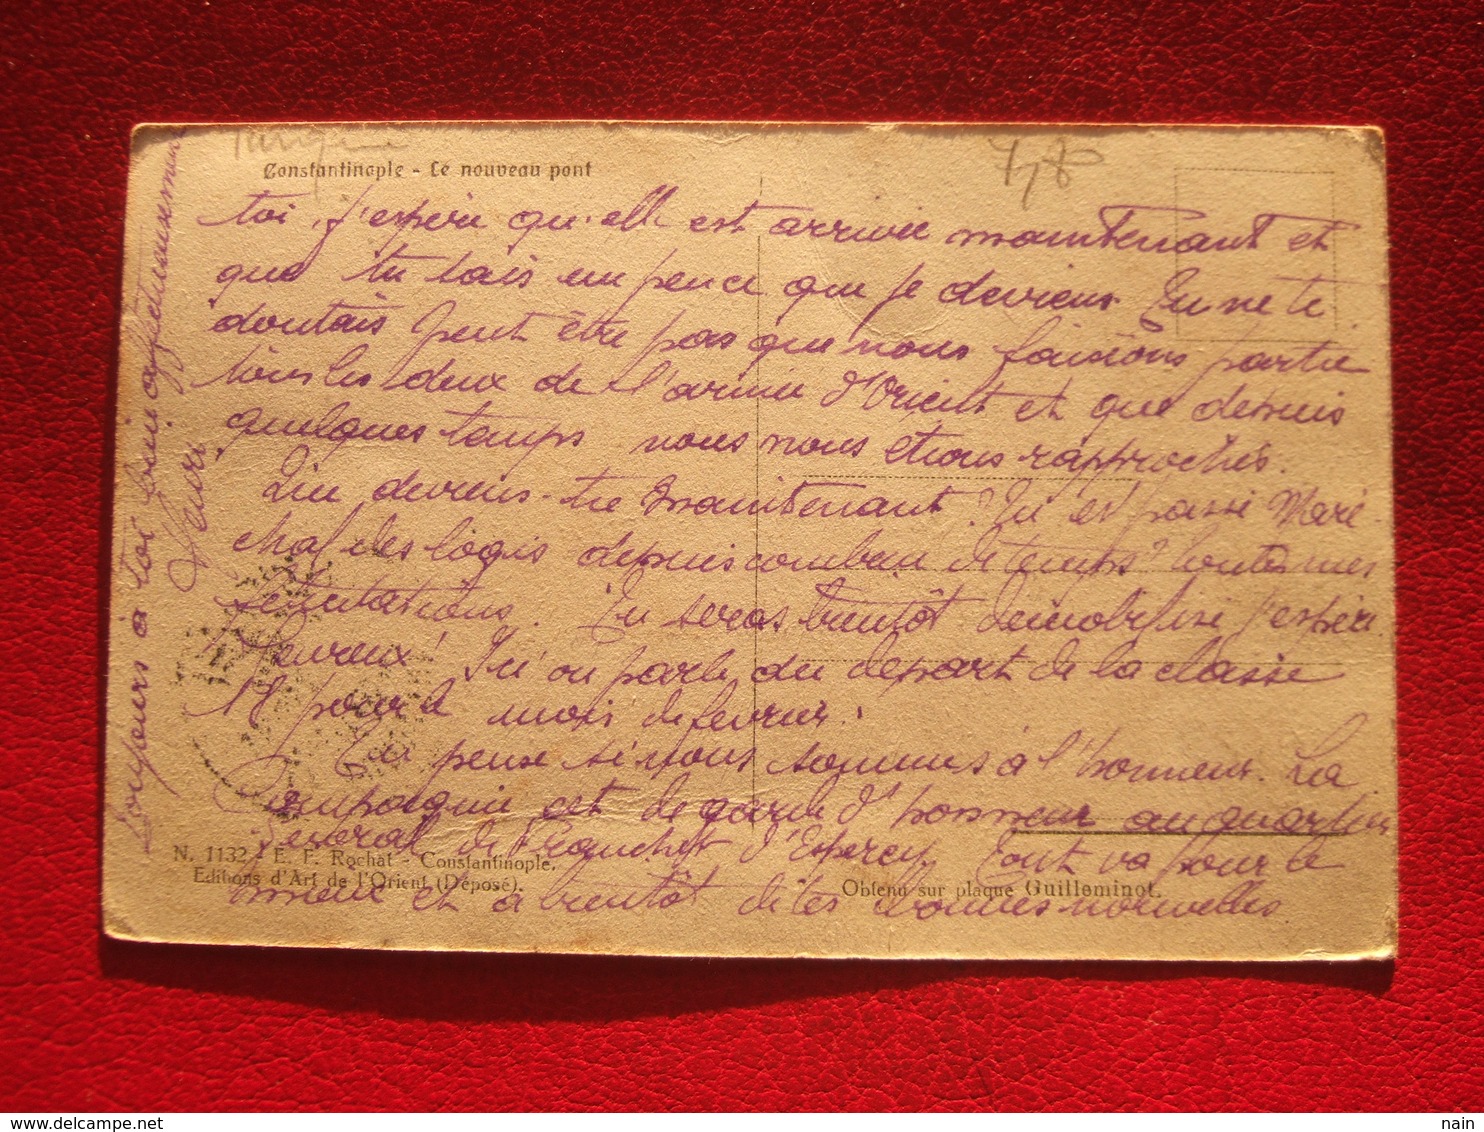 Turquie
Constantinople - Le nouveau pont
toi, j'espère qu'elle est arrivée maintenant et
que tu sais un peu ce que je deviens. Tu ne te
doutais peut être pas que nous faisions partie
tous les deux de l'armée d'Orient et que depuis
quelques temps nous nous étions rapprochés.
Que deviens-tu maintenant? Tu es passé Maré-
chal des logis depuis combien de temps? toutes mes
félicitations. Tu seras bientôt démobilisé j'espère
heureux! Ici on parle du départ de la classe
18 pour le mois de fevrier.
Tu penses si nous sommes à l'honneur. La
Compagnie est de garde d'honneur au quartier
Général de Franchet d'Esperey. Tout va pour le
mieux et à bientôt dites bonnes nouvelles.
Toujours à toi bien affectueusement
Henri
N. 1132 - E. F. Rochat - Constantinople.
Editions d'Art de l'Orient (Déposé).
Obtenu sur plaque Guilleminot.
delcampe.net
nain